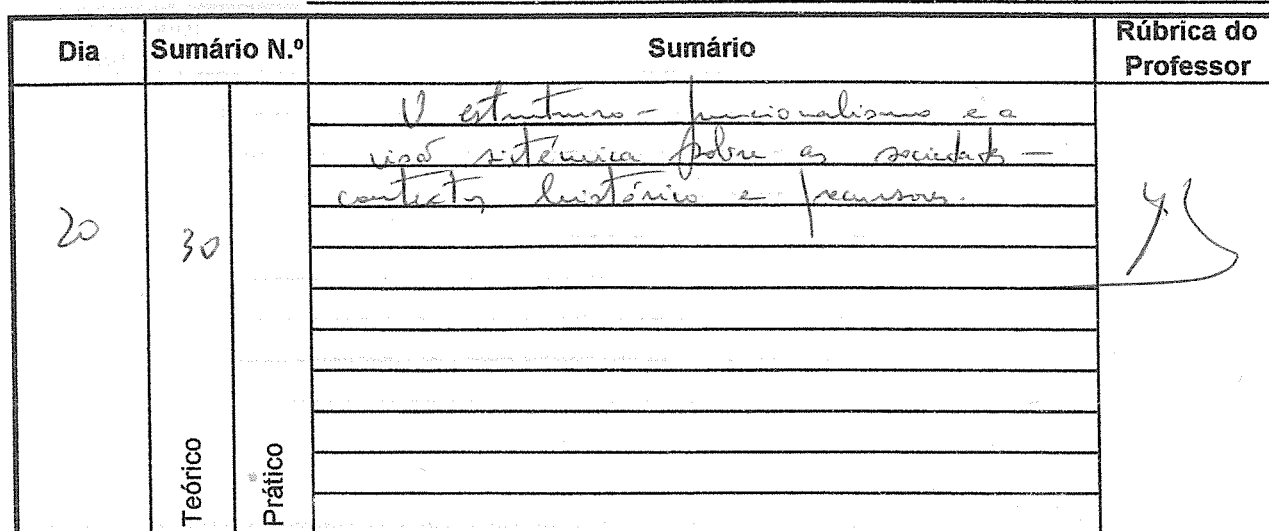 Dia Sumário N.º Sumário Rúbrica do Professor
O estruturo-funcionalismo e a
visão sistémica sobre as sociedades –
contextos histórico e precursores.
20 30
Teórico Prático